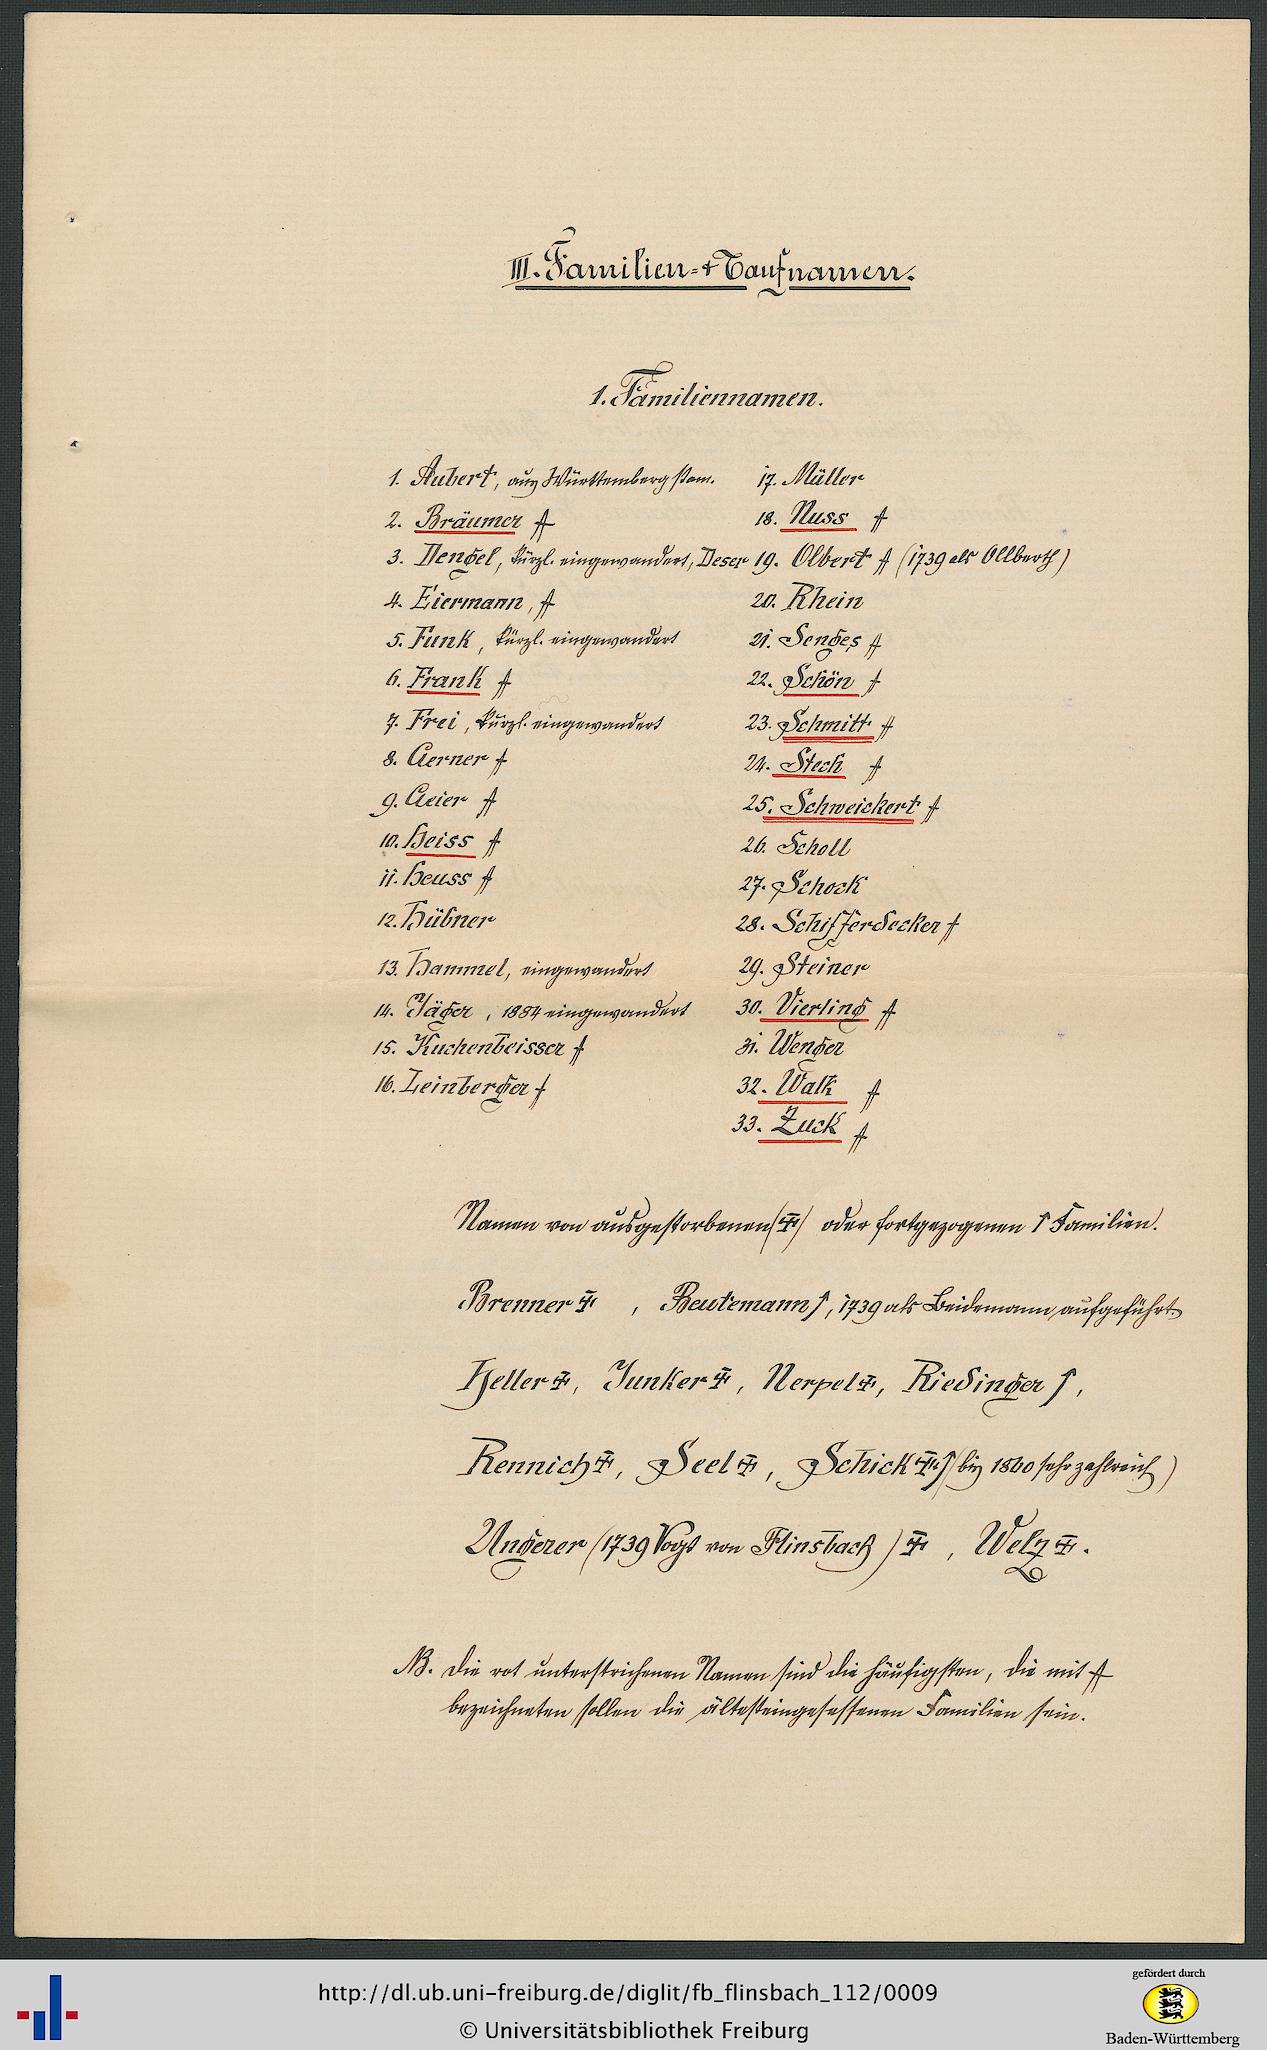 III. Familien- & Taufnamen.
1. Familiennamen.
1. Aubert, aus Württemberg stam.
2. Bräumer
3. Dengel, kürzl. eingewandert, Deser
4. Eiermann,
5. Funk, kürzl. eingewandert
6. Frank
7. Frei, kürzl. eingewandert
8. Gerner
9. Geier
10. Heiss
11. Heuss
12. Hübner
13. Hammel, eingewandert
14. Jäger, 1884 eingewandert
15. Kuchenbeisser
16. Leinberger
17. Müller
18. Nuss
19. Olbert (1739 als Ollberth)
20. Rhein
21. Senges
22. Schön
23. Schmitt
24. Stech
25. Schweickert
26. Scholl
27. Schock
28. Schifferdecker
29. Steiner
30. Vierling
31. Wenger
32. Walk
33. Zuck
Namen von ausgestorbenen (‡) oder fortgezogenen ↑ Familien.
Brenner ‡, Beutemann ↑, 1739 als Beidemann aufgeführt
Heller ‡, Junker ‡, Nerpel ‡, Riedinger ↑,
Rennich ‡, Seel ‡, Schick ‡ ↑ (bis 1860 sehr zahlreich)
Ungerer (1739 Vogt von Flinsbach) ‡, Welz ‡.
NB. die rot unterstrichenen Namen sind die häufigsten, die mit
bezeichneten sollen die ältesteingesessenen Familien sein.
http://dl.ub.uni-freiburg.de/diglit/fb_flinsbach_112/0009
© Universitätsbibliothek Freiburg
gefördert durch
Baden-Württemberg